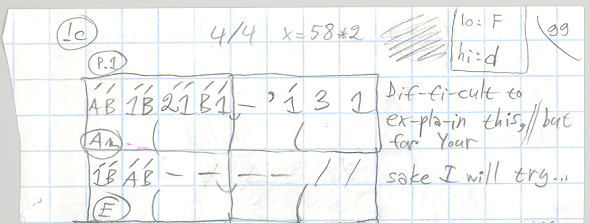 1c 4/4 x=58*2 lo: F 99
hi=d
P.1
AB 1B 21 B1 – , 1 3 1 Dif-fi-cult to
ex-pla-in this,// but
Am for Your
1B AB – – – – / / sake I will try...
E